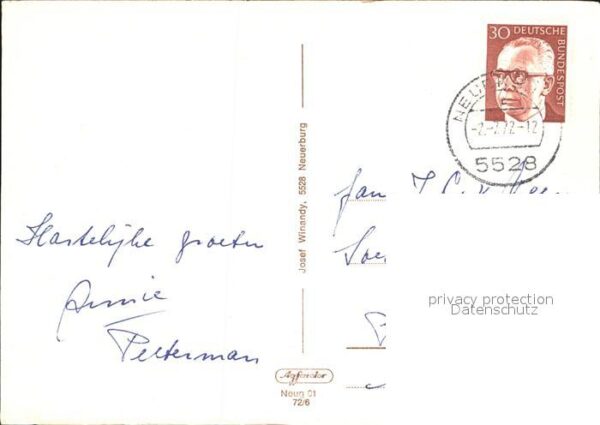 30 DEUTSCHE BUNDESPOST
-2.-2.72-12
5528
Hartelijke groeten
Annie
Pelterman
Josef Winandy, 5528 Neuerburg
Agfacolor
Neug 01
72/6
Fam
privacy protection
Datenschutz